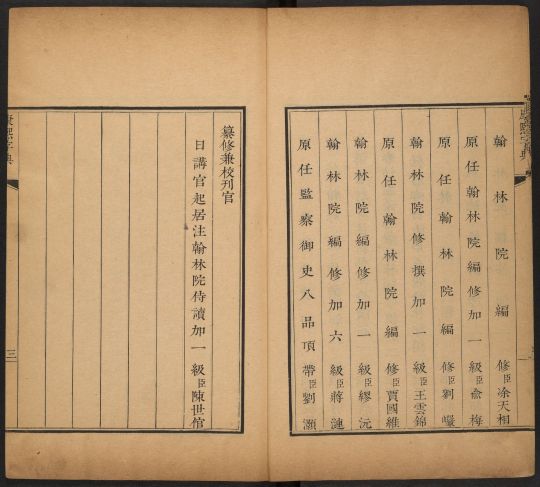 康熙字典
翰林院編修臣涂天相
原任翰林院編修加一級臣俞梅
原任翰林院編修臣劉巖
翰林院修撰加一級臣王雲錦
原任翰林院編修臣賈國維
翰林院編修加一級臣繆沅
翰林院編修加六級臣蔣漣
原任監察御史八品頂帶臣劉灝
纂修兼校刊官
日講官起居注翰林院侍讀加一級臣陳世倌
康熙字典
三